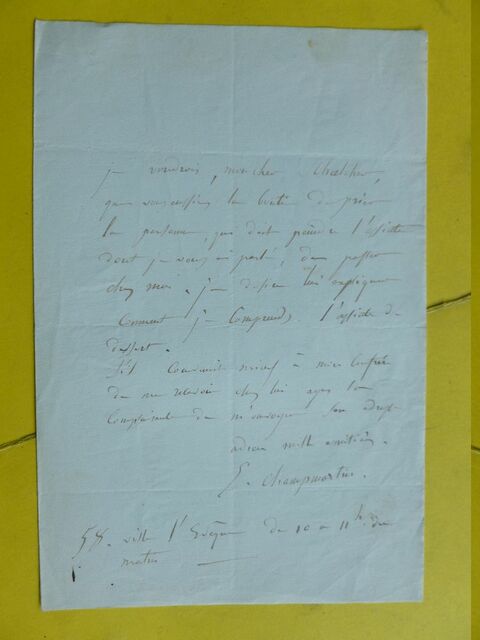 je voudrois, mon cher Schoelcher
que vous eussiez la bonté de prier
la personne, qui doit peindre l'assiette
dont je vous ai parlé, de passer
chez moi. je désire lui expliquer
Comment je Comprends l'assiette de
dessert.
S'il convenait mieux à mon confrère
de me recevoir chez lui ayez la
Complaisance de m'envoyer son adresse
adieu mille amitiés.
E. Champmartin.
58. ville l'Evêque de 10 a 11h du
matin